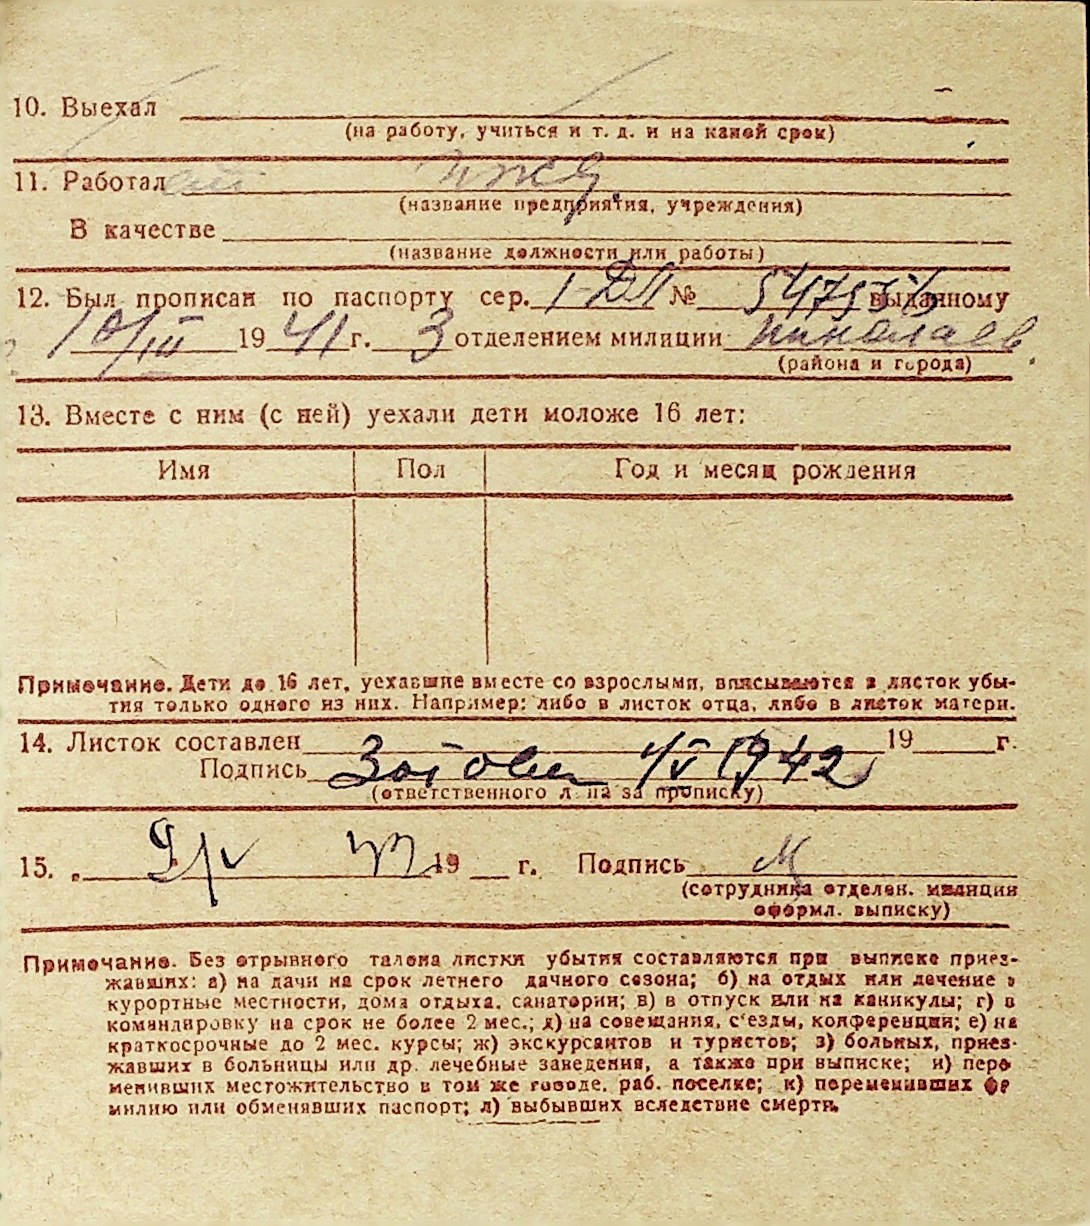 10. Выехал
(на работу, учиться и т. д. и на какой срок)
11. Работал
(название предприятия, учреждения)
В качестве
(название должности или работы)
12. Был прописан по паспорту сер. I-ДЛ № выданному
10/III 1941 г. 3 отделением милиции Николаев
(района и города)
13. Вместе с ним (с ней) уехали дети моложе 16 лет:
Имя Пол Год и месяц рождения
Примечание. Дети до 16 лет, уехавшие вместе со взрослыми, вписываются в листок убы-
тия только одного из них. Например: либо в листок отца, либо в листок матери.
14. Листок составлен 19 г.
Подпись 4/V 1942
(ответственного л на за прописку)
15. 19 г. Подпись
(сотрудника отделен. милиции
оформл. выписку)
Примечание. Без отрывного талона листки убытия составляются при выписке приез-
жавших: а) на дачи на срок летнего дачного сезона; б) на отдых или лечение в
курортные местности, дома отдыха, санатории; в) в отпуск или на каникулы; г) в
командировку на срок не более 2 мес.; д) на совещания, с'езды, конференции; е) на
краткосрочные до 2 мес. курсы; ж) экскурсантов и туристов; з) больных, приез-
жавших в больницы или др. лечебные заведения, а также при выписке; и) пере
менивших местожительство в том же городе, раб. поселке; к) переменивших фа
милию или обменявших паспорт; л) выбывших вследствие смерти.